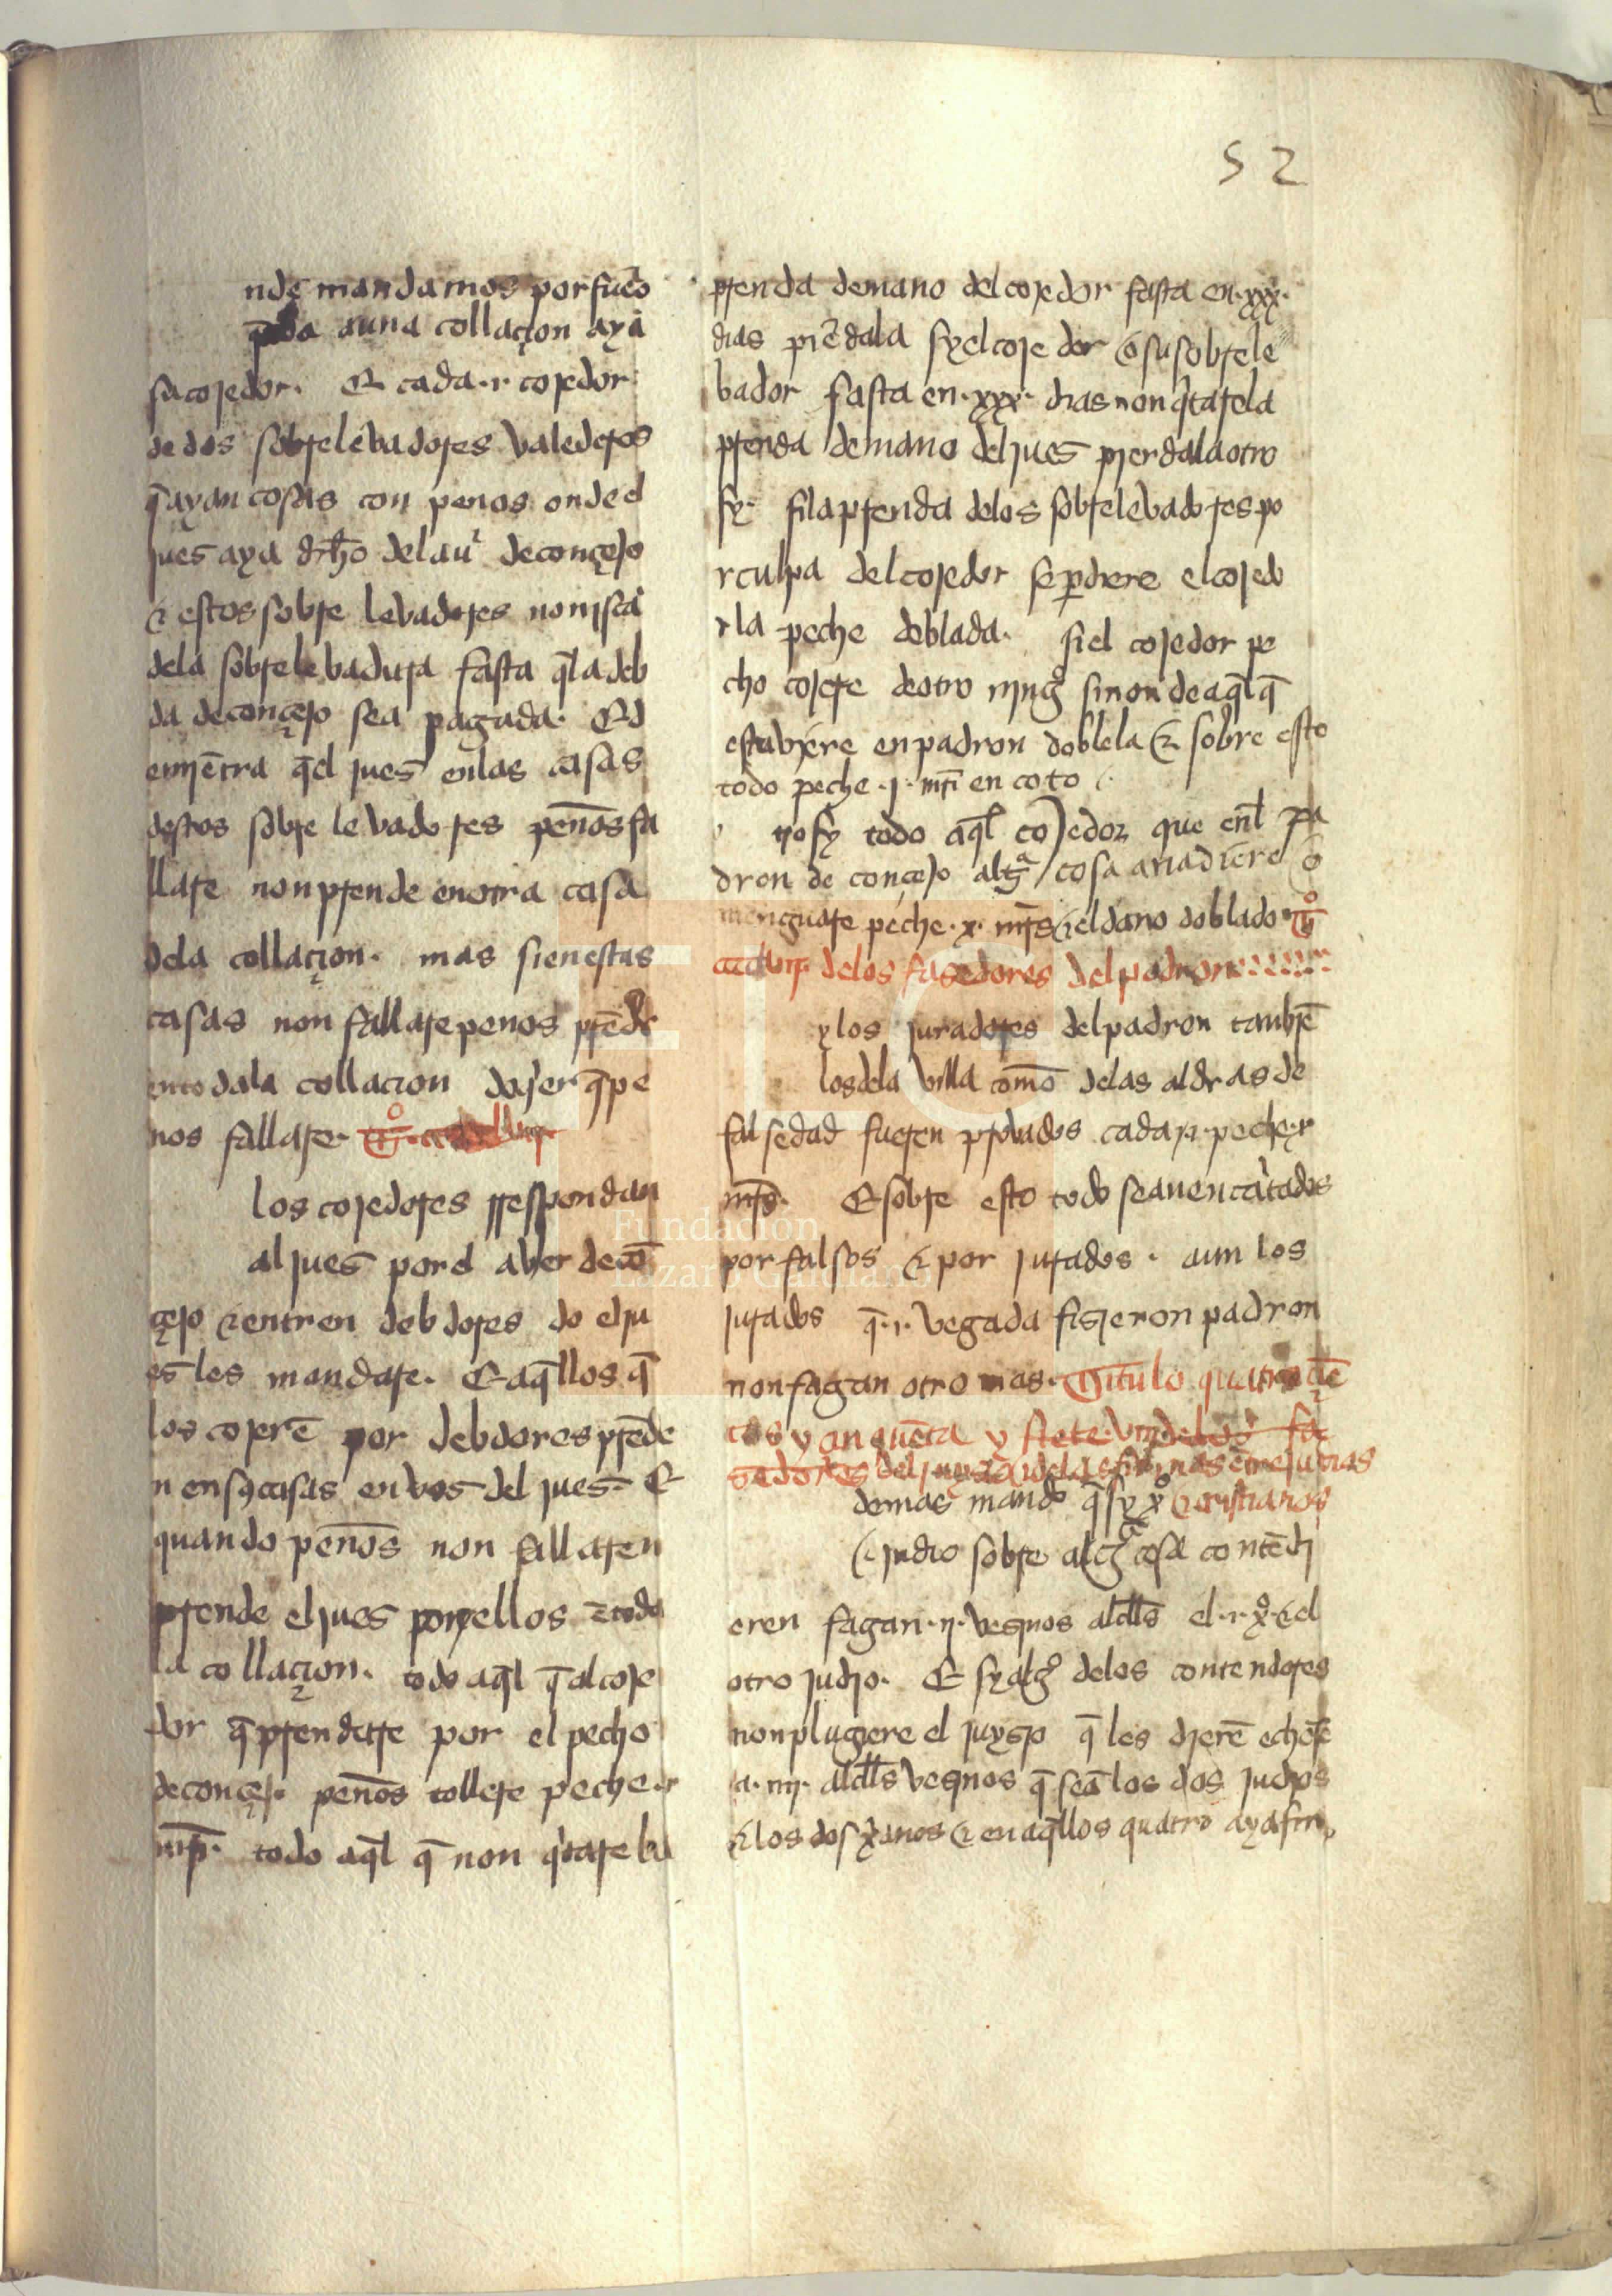 52
nde mandamos por fuēo
q̄ da auna collaçion aya
su cojedor. E cada .i. cojedor
de dos sobrelevadores valederos
q̄ ayan cosas con penos onde el
jues aya drh̄o del au̍ de conçejo
& estos sobre levadores non isca
dela sobrelevadura fasta q̄ la deb
da de conçejo sea pagada. E d
emiētra q̄ el jues enlas casas
destos sobre levadores penōs fa
llare non prende en otra casa
dela collaçion. mas si en estas
casas non fallare penos prēde
en toda la collacion do q̄er q̄ pe
nos fallare. Tº.
los cojedores rrespondan
al jues por el aver de cō
çejo & entren debdores do el ju
es les mandare. E aq̄llos q̄
los cojerē por debdores prēde
n en sꝯ casas en vos del jues E
quando penōs non fallaren
prende el jues por ellos ē toda
la collaçion. todo aq̄l q̄ al coje
dor q̄ prendare por el pecho
de conçejo penōs tollere peche .i
mr̄. todo aq̄l q̄ non q̍tare la
prenda de mano del cojedor fasta en .xxx.
dias piērdala sy el cojedor o su sobrele
bador fasta en .xxx. dias non q̍tare la
prenda de mano del jues pierdala otro
sy. si la prenda delos sobrelevadores po
r culpa del cojedor se perdiere el cojedo
r la peche doblada. si el cojedor pe
cho cojere de otro ningº sinon de aq̄l q̄
estubiere en padron doblela & sobre esto
todo peche .j. mr̄i en coto
rosy todo aq̄l cojedor que enl̄ pa
dron de conçejo algª cosa anadiere o
menguare peche .x. mr̄s & el dano doblado Tº
delos fasedores del padron
y los juradores del padron tanbiē
los dela villa comō delas aldeas de
falsedad fueren provados cada .i. peche .x
mr̄s. E sobre esto todo sean encartados
por falsos & por jurados. aun los
jurados q̄ .i. vegada fisieron padron
non fagan otro mas. Titulo quatro çiē
tos y çinquēta y siete delos fa
sedores del & delas firmas ētre judios
& cristianos
demas mando q̄ sy xº
& judio sobre algª cosa contēdi
eren fagan .ij. vesinos alcl̄ls el .i. xº & el
otro judio. E sy algº delos contendores
non plugiere el juysio q̄ les dierē echēse
a .iiij. alcl̄ls vesinos q̄ seā los dos judios
& los dos xianos & en aq̄llos quatro aya fin